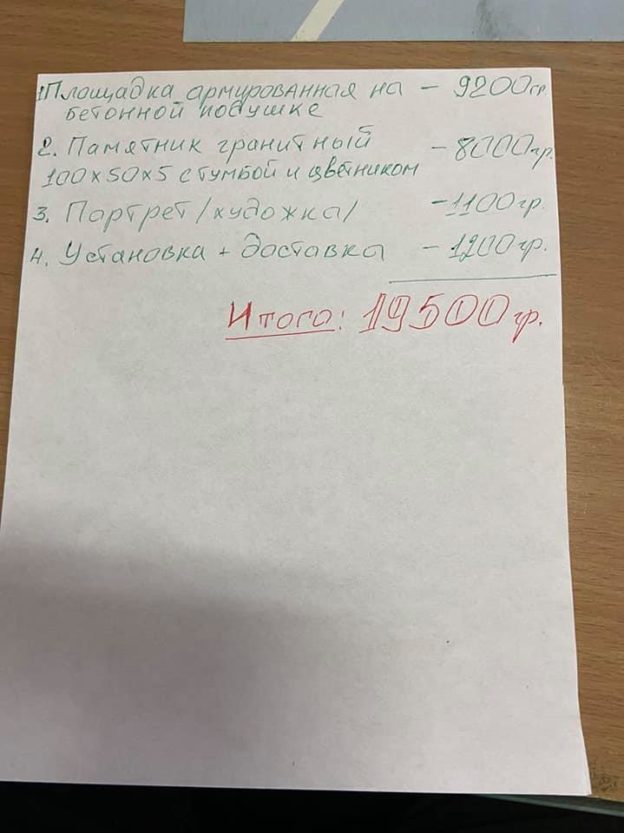 1. Площадка армированная на - 9200гр
бетонной подушке
2. Памятник гранитный - 8000гр.
100х50х5 с тумбой и цветником
3. Портрет /художка/ - 1100гр.
4. Установка + доставка - 1200гр.
Итого: 19500гр.